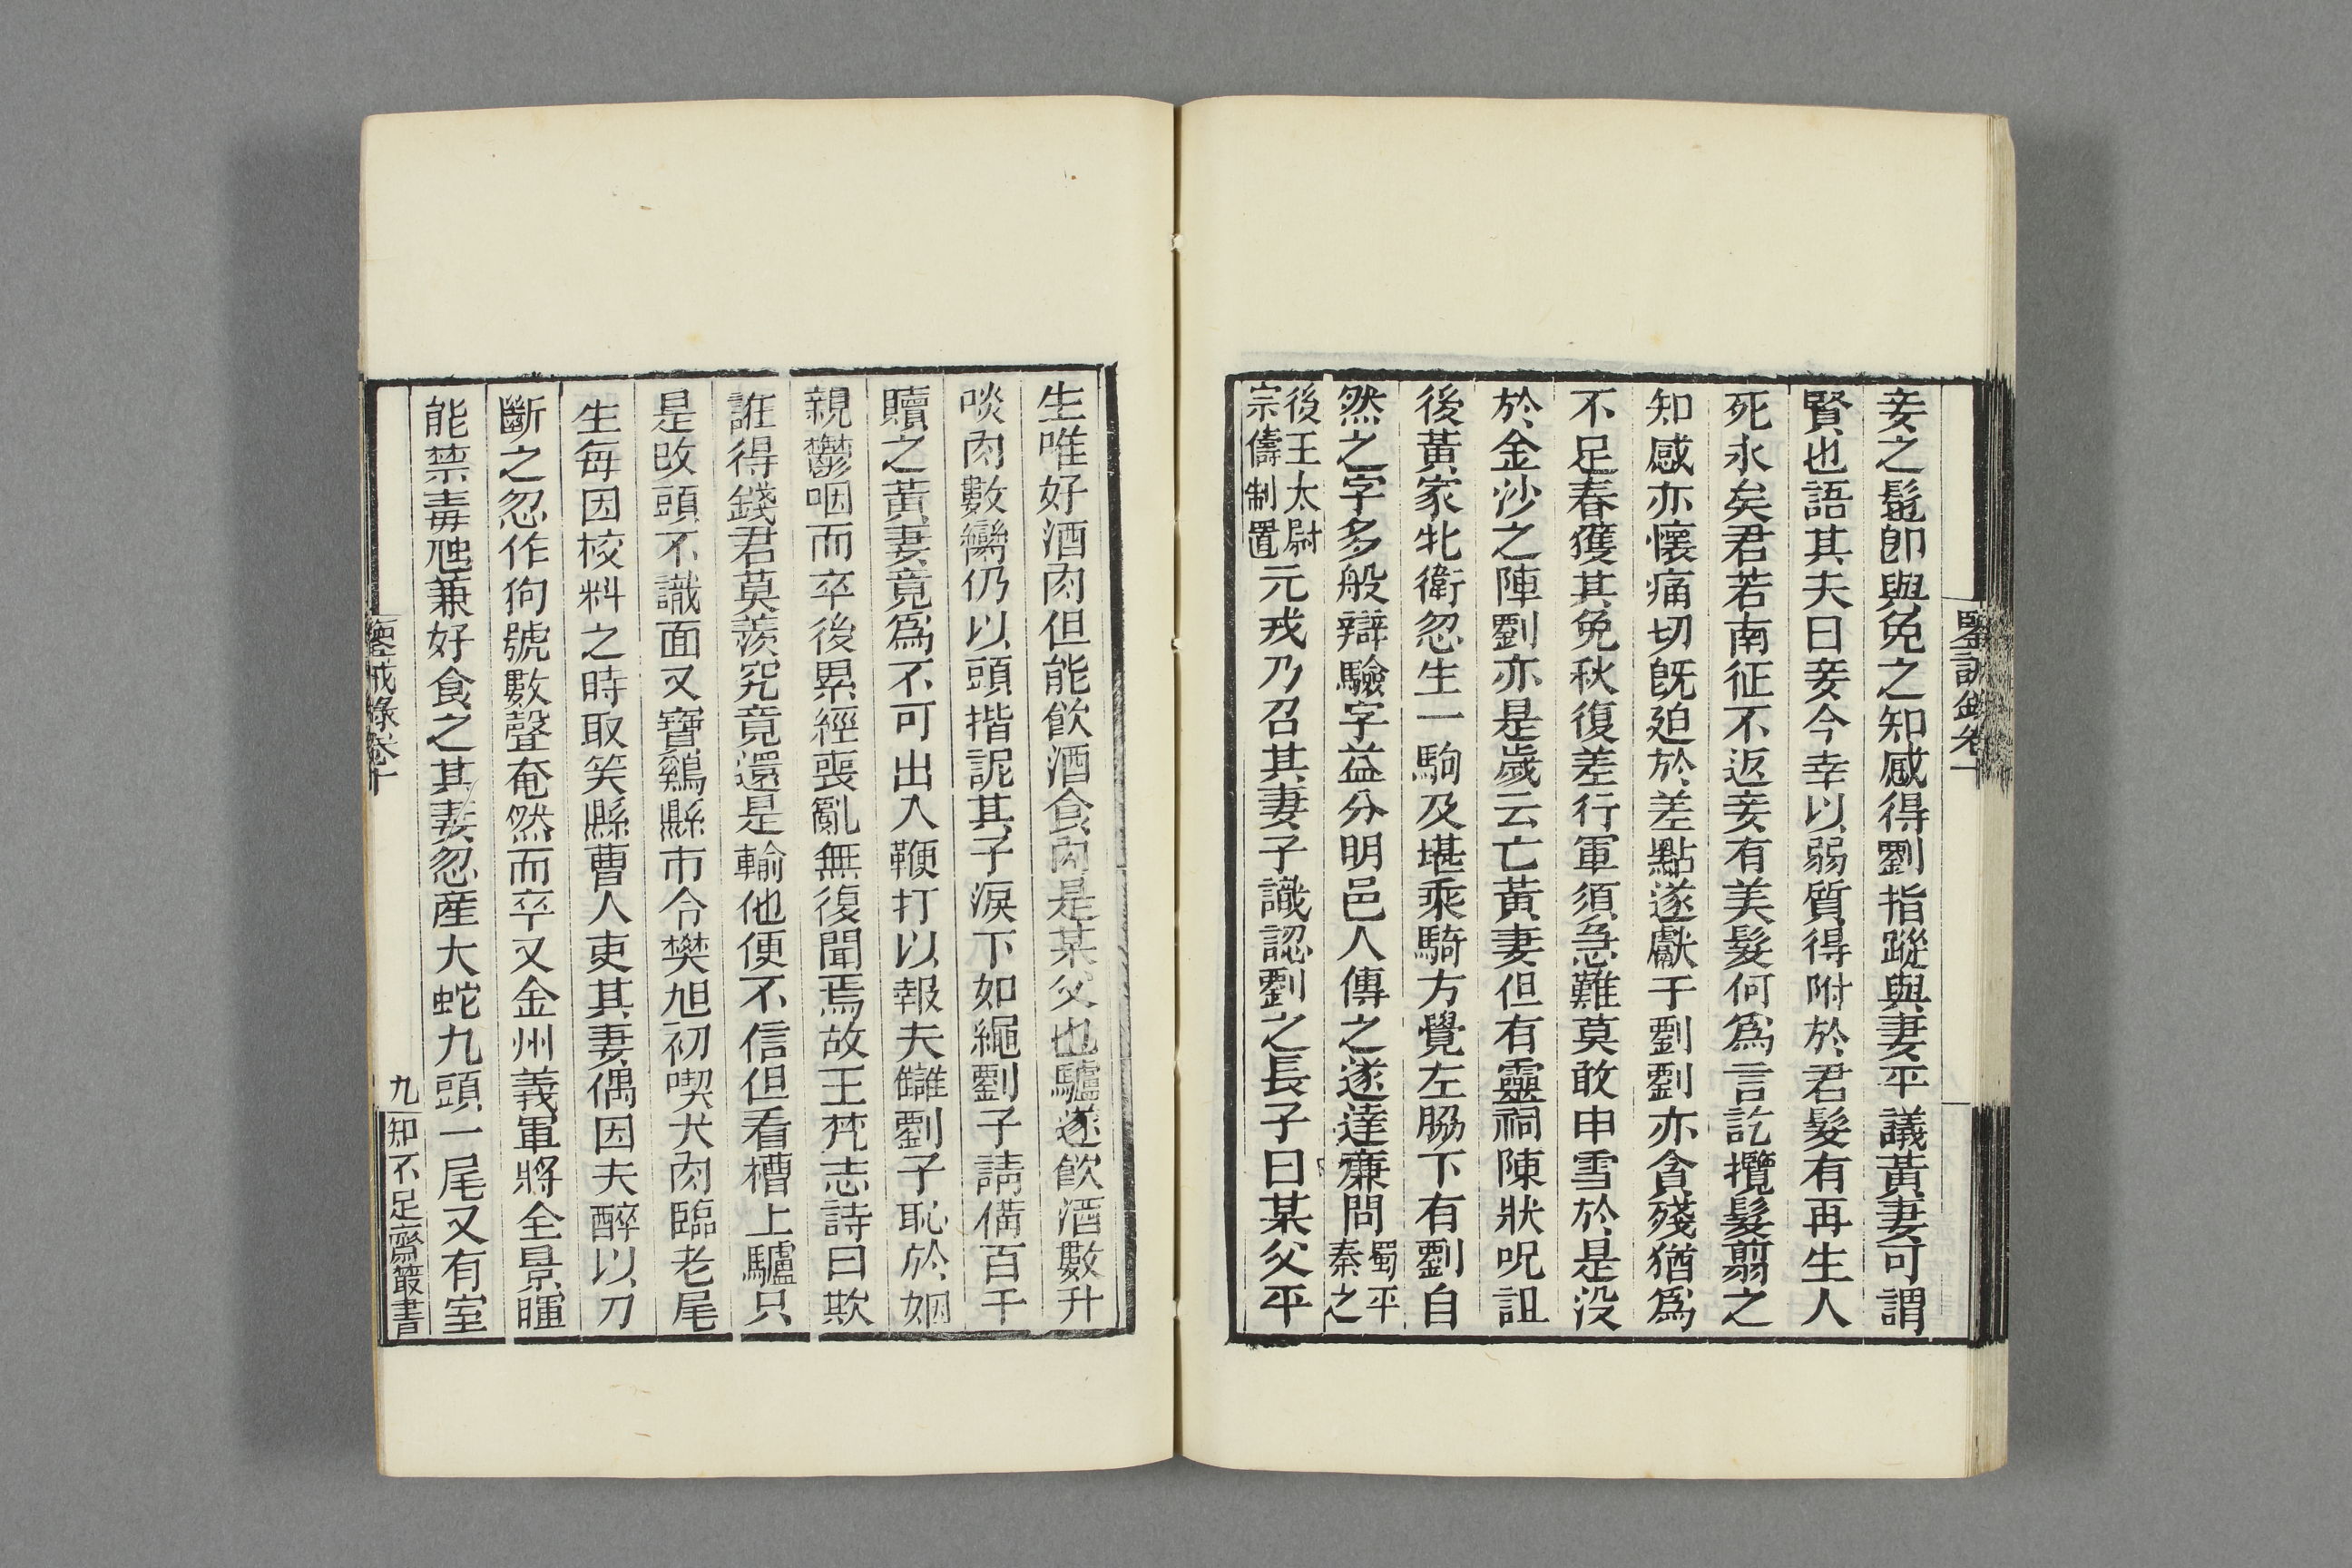 鑒誡錄卷十
妾之髢卽與免之知感得劉指蹤與妻平議黃妻可謂
賢也語其夫曰妾今幸以弱質得附於君髮有再生人
死永矣君若南征不返妾有美髮何爲言訖攬髮翦之
知感亦懷痛切旣廹於差點遂獻于劉劉亦貪殘猶爲
不足春獲其免秋復差行軍須急難莫敢申雪於是没
於金沙之陣劉亦是歲云亡黃妻但有靈祠陳狀呪詛
後黃家牝衛忽生一駒及堪乘騎方覺左脇下有劉自
然之字多般辯驗字益分明邑人傳之遂達廉問蜀平秦之
後王太尉宗儔制置元戎乃召其妻子識認劉之長子曰某父平
生唯好酒肉但能飮酒食肉是某父也驢遂飮酒數升
啖肉數臠仍以頭揩訛其子淚下如繩劉子請備百千
贖之黃妻竟爲不可出入鞭打以報夫讎劉子恥於姻
親鬱咽而卒後累經喪亂無復聞焉故王梵志詩曰欺
誑得錢君莫羨究竟還是輸他便不信但看槽上驢只
是改頭不識面又寶鷄縣市令樊旭初喫犬肉臨老尾
生每因校料之時取笑縣曹人吏其妻偶因夫醉以刀
斷之忽作狗號數聲奄然而卒又金州義軍將全景暉
能禁毒虵兼好食之其妻忽産大蛇九頭一尾又有室
鑒誡錄卷十
九
知不足齋叢書